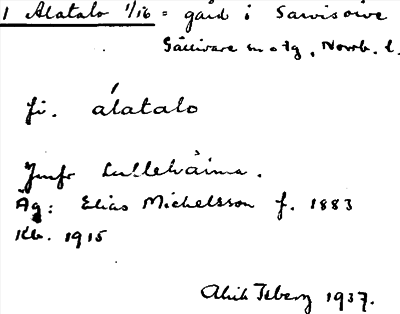 1 Alatalo 1/16 = gård i Sarvisoive
Gällivare sn o tg, Norrb. l.
fi. álatalo
Jmfr Lullehäima.
Äg: Elias Michelsson f. 1883
Kb. 1915
Alvik Isberg 1937.